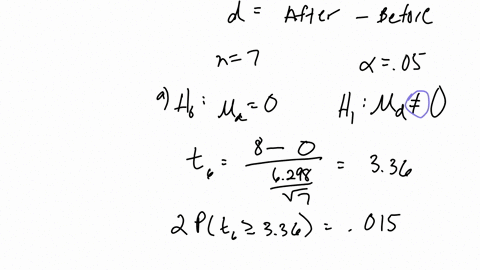 d = After - Before
n = 7 α = .05
a) H₀ : μ_d = 0 H₁ : μ_d ≠ 0
t₆ = (8 - 0) / (6.298 / √7) = 3.36
2 P(t₆ ≥ 3.36) = .015